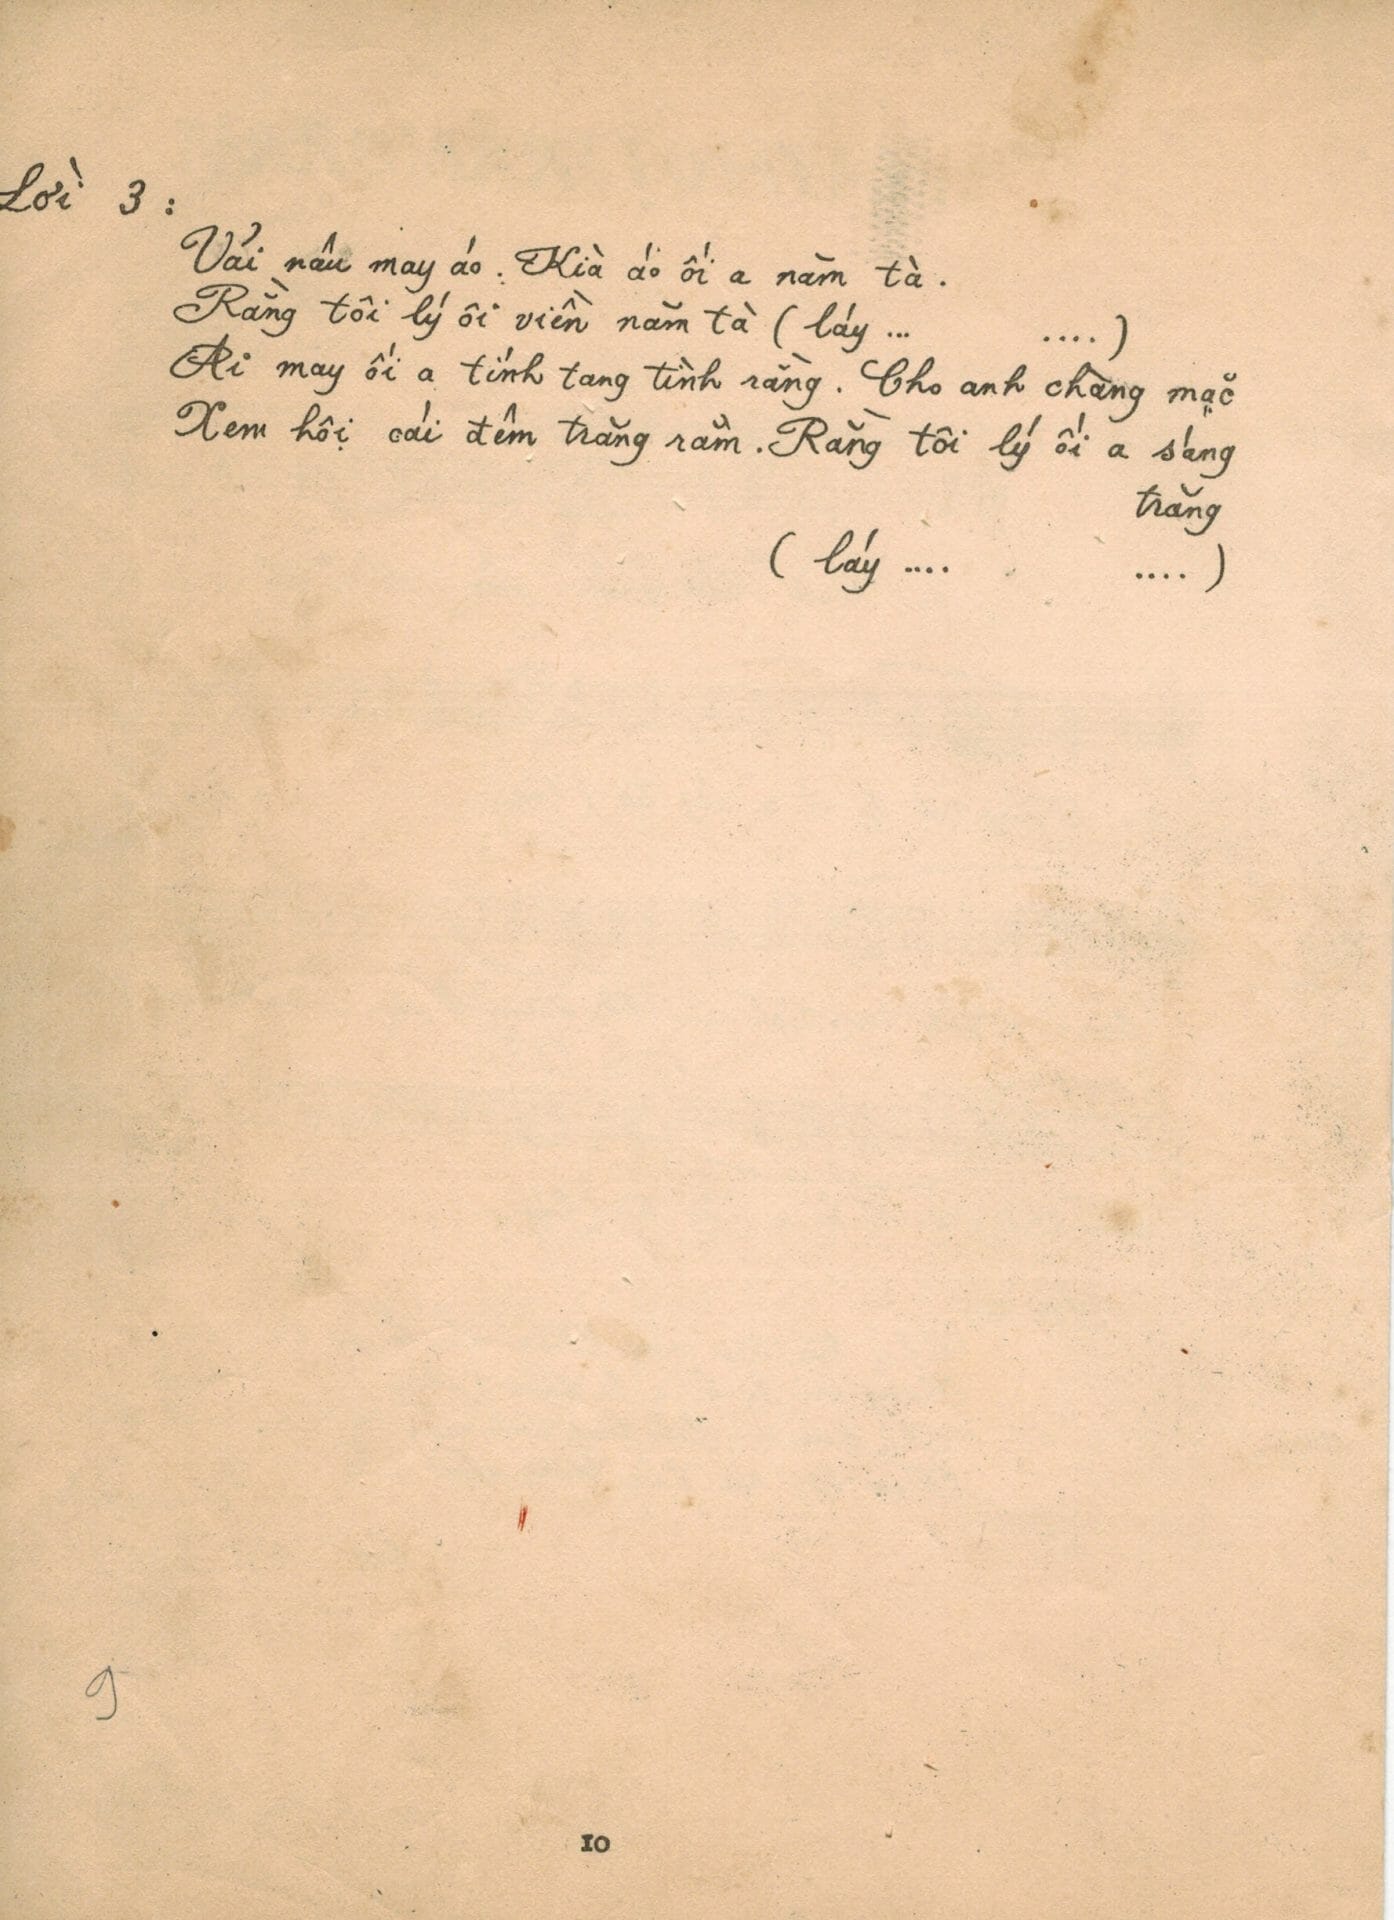 Lời 3 :
Vải nâu may áo. Kià áo ối a năm tà.
Rằng tôi lý ôi viền năm tà ( láy ... ....)
Ai may ối a tính tang tình rằng. Cho anh chàng mặc
Xem hội cái đêm trăng rằm. Rằng tôi lý ối a sáng
trăng
( láy .... .... )
9
10